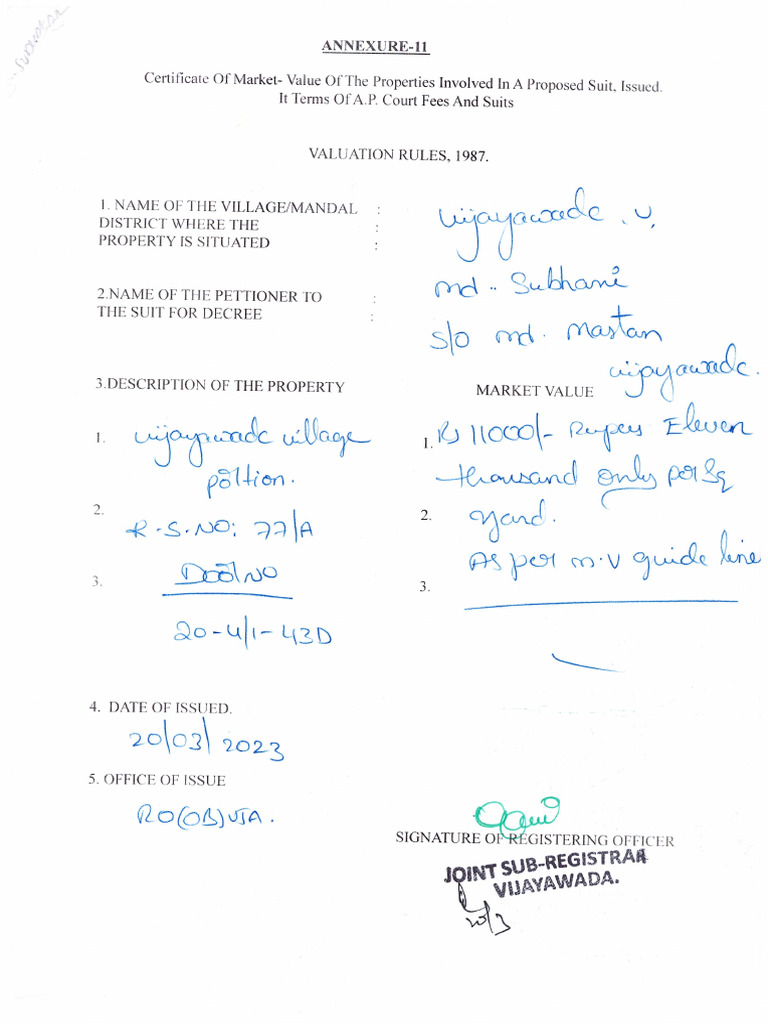 ANNEXURE-11
Certificate Of Market- Value Of The Properties Involved In A Proposed Suit, Issued.
It Terms Of A.P. Court Fees And Suits
VALUATION RULES, 1987.
1. NAME OF THE VILLAGE/MANDAL :
DISTRICT WHERE THE :
PROPERTY IS SITUATED :
Vijayawada . V,
2.NAME OF THE PETTIONER TO :
THE SUIT FOR DECREE :
md .. Subhani
S/O md. mastan
vijayawada.
3.DESCRIPTION OF THE PROPERTY
MARKET VALUE
1. vijayawada village
poltion.
1. Rs 11000/- Rupees Eleven
thousand only per Sq
2. R.S.NO: 77/A
2. yard.
As per m.v guide line
3. Door NO
3.
20-4/1-43D
4. DATE OF ISSUED.
20/03/2023
5. OFFICE OF ISSUE
RO(OB)VJA.
SIGNATURE OF REGISTERING OFFICER
JOINT SUB-REGISTRAR
VIJAYAWADA.
20/3